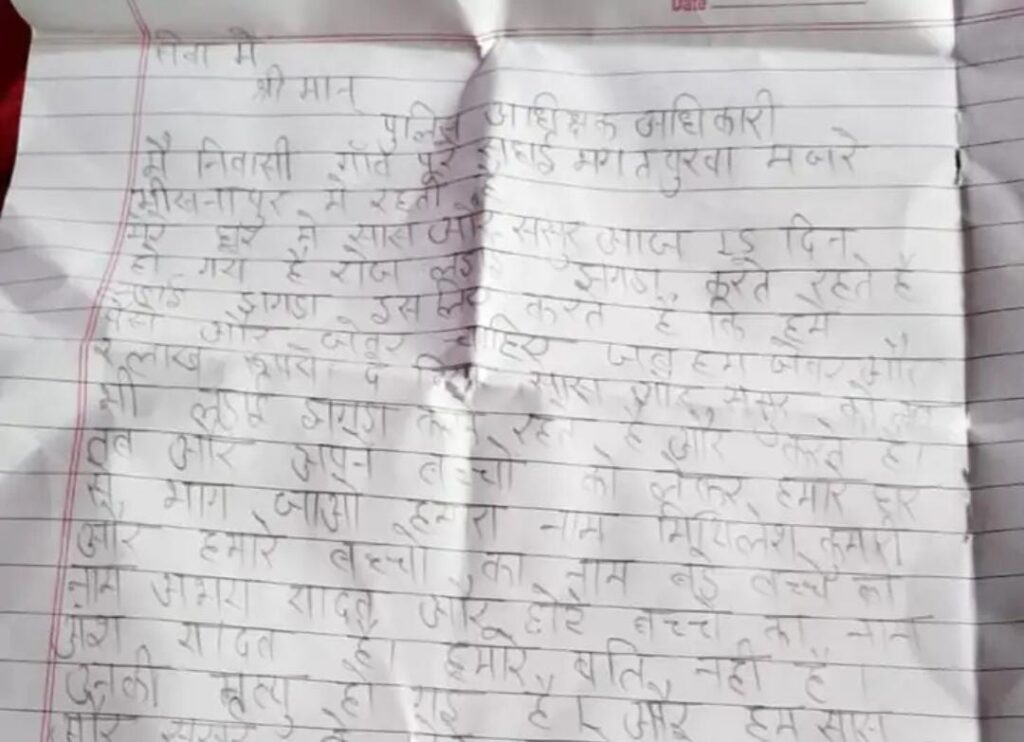 Date
सेवा मे
श्री मान्
पुलिस अधिक्षक अधिकारी
मै निवासी गाँव पूरे भगत पुरवा मजरे
भीखनापुर मे रहती हूँ
मेरे घर मे सास और ससुर आज 15 दिन
हो गया है रोज लड़ाई झगडा करते रहते है
लड़ाई झगडा इसलिए करते है कि हमे
पैसा और जेवर चाहिए जब हम जेवर और
लाख रूपये दे सास और ससुर को
भी लड़ाई झगडा करते रहते है और कहते है।
तुम और अपने बच्चो को लेकर हमारे घर
से भाग जाओ हमारा नाम मिथिलेश कुमारी
और हमारे बच्चो का नाम बड़े बच्चे का
नाम यादव और छोटे बच्चे का नाम
अंश यादव है। हमारे पति नही है।
उनकी मृत्यु हो गई है। और हम सास
और ससुर